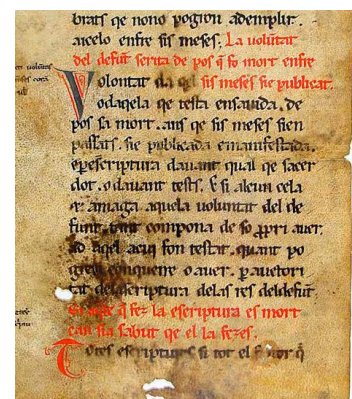 brats qe nono pogron adempLir.
aicelo enfre sis meses. La voluntat
del defut serita de pos q̄ fo mort enfre
Volontat sis meses sie publicat.
odaqela qe testa ensavida. de
pos sa mort. ans qe sis meses sien
passats. sie publicada emanifestada.
eperescriptura davant qual qe sacer
dot. o davant tests. E si alcun cela
amaga aquela voluntat del de
funt. compona de so ppri aver.
aqel acui fon testat. quant po
conquerre o aver. p auctori
tat del escriptura delas res deldefut
q̄ fez la escriptura es mort
can sia sabut qe el la fezes.
Totes escriptures si tot el q̄